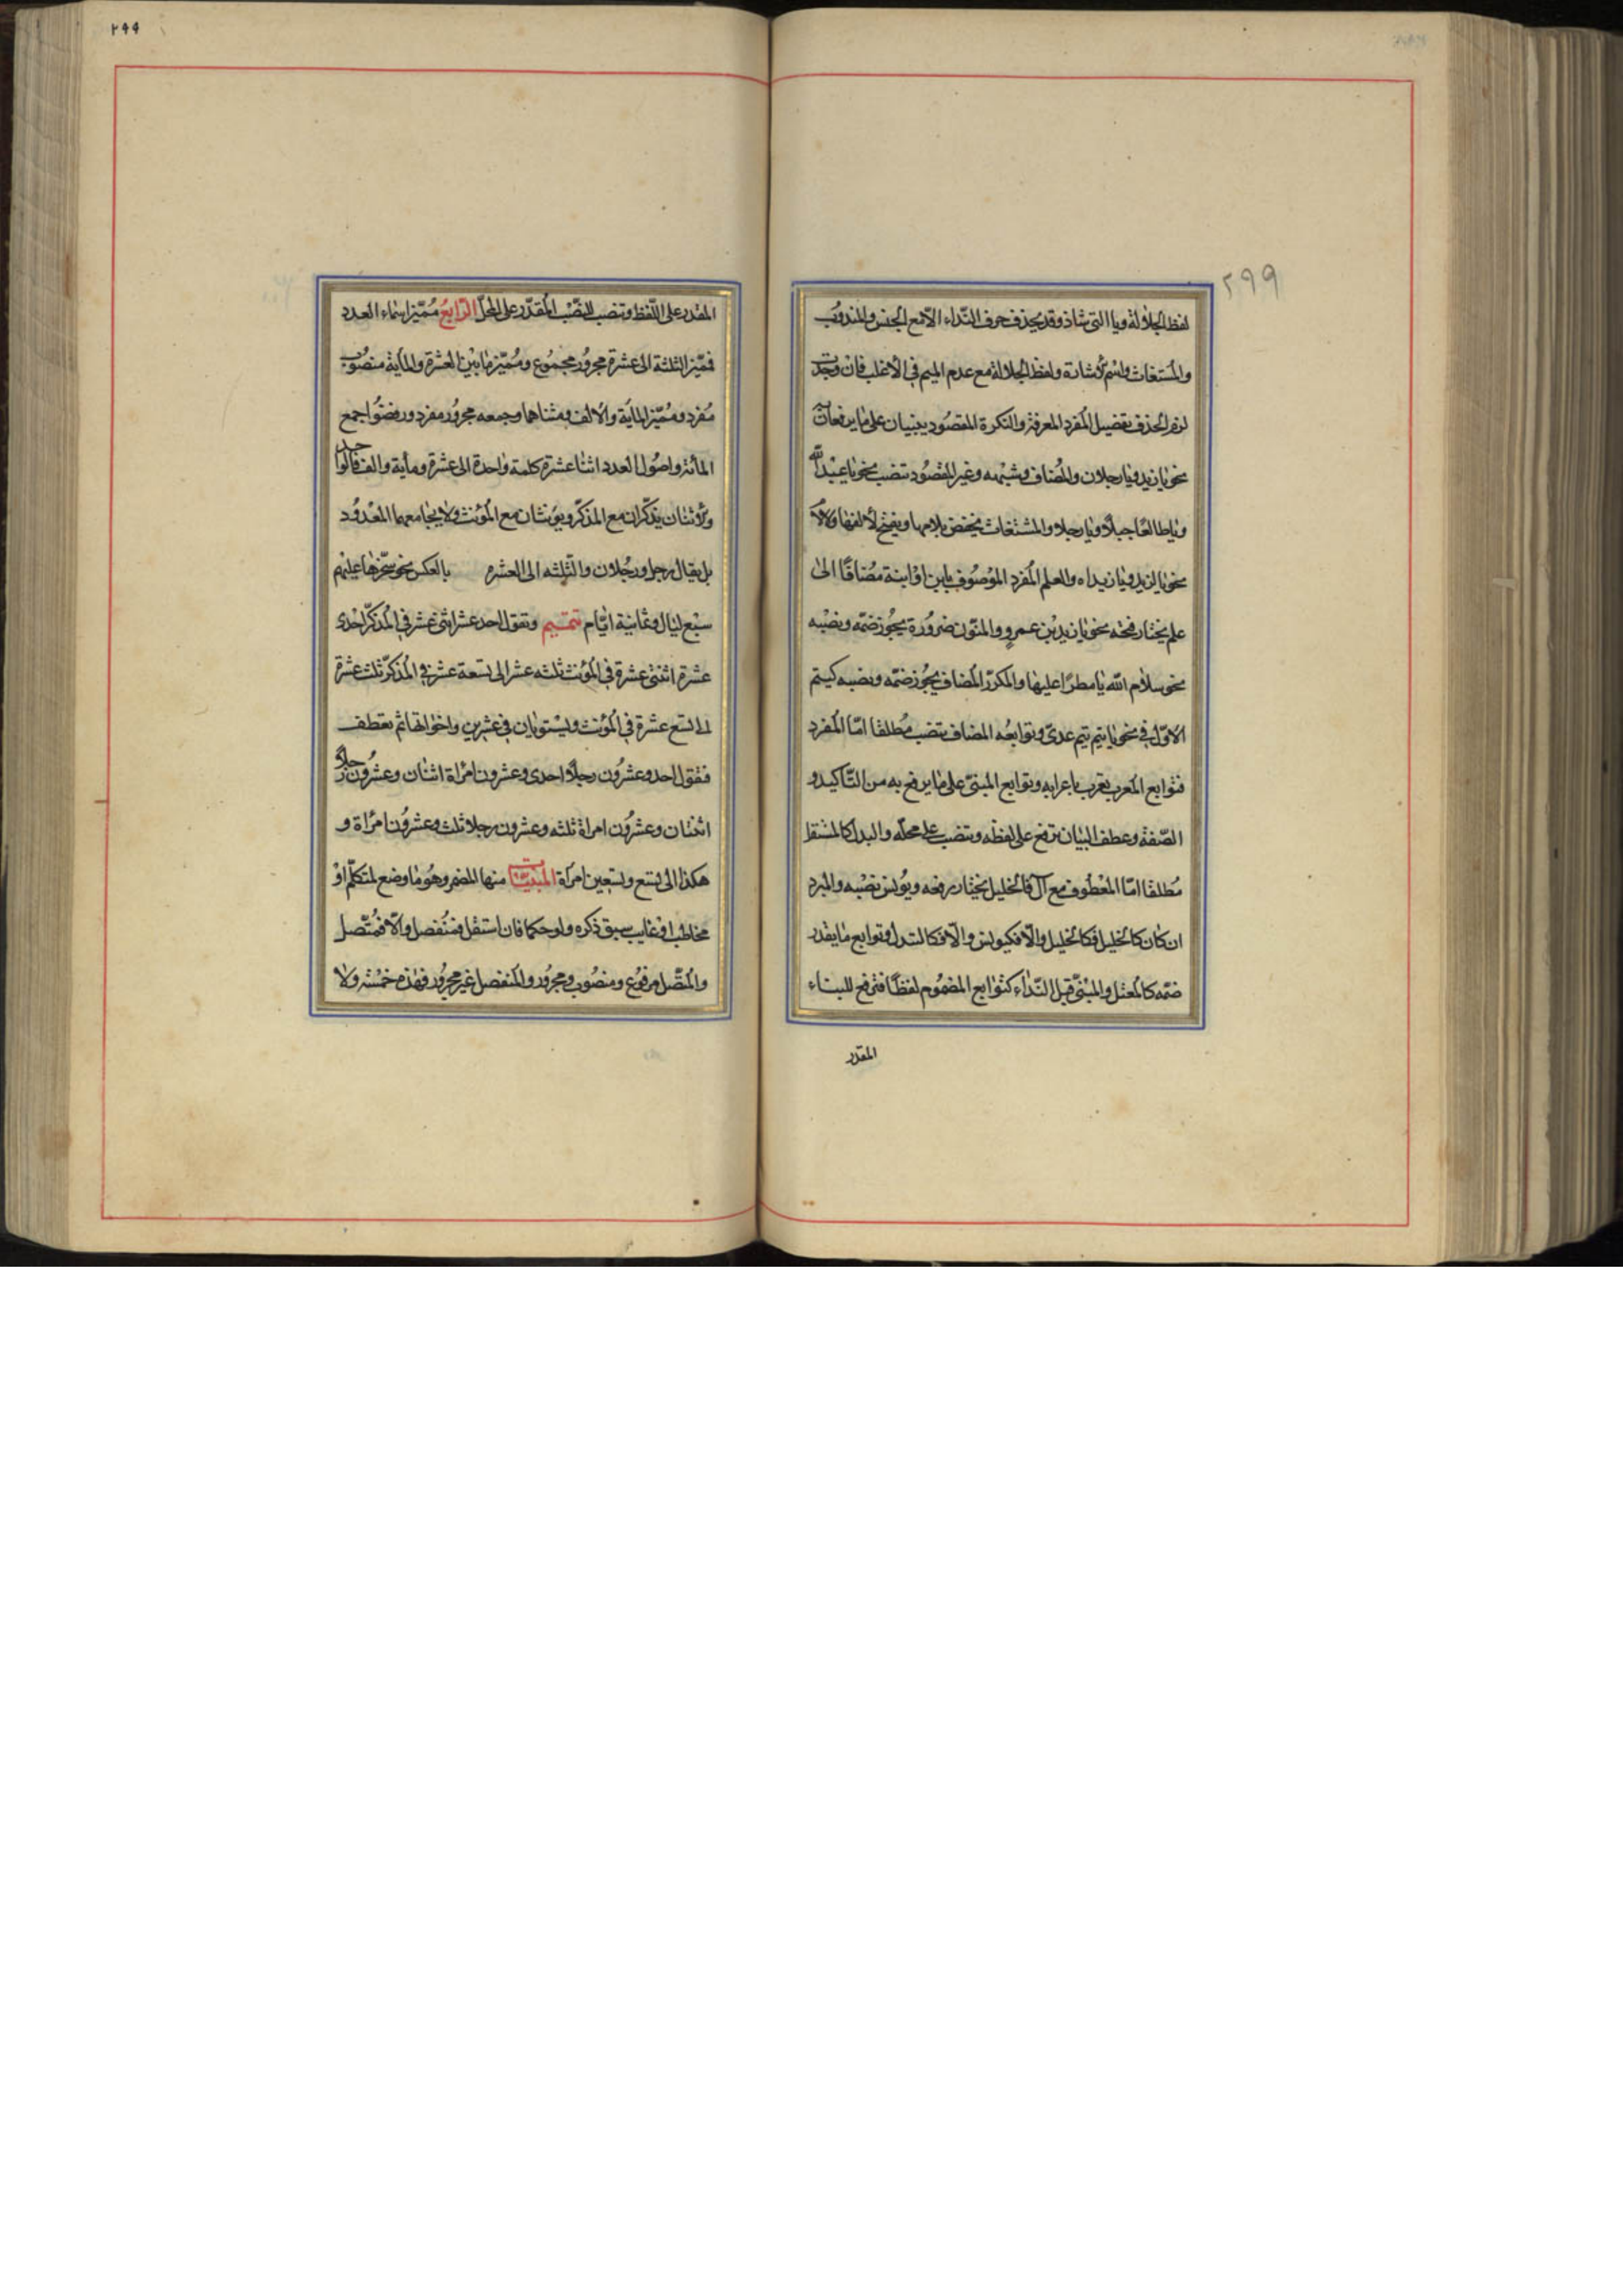 ٢٩٩
لفظ الجلالة ويا التى شاذ وقد يحذف حرف النداء الا مع الجنس والمندوب
والمستغاث واسم الاشارة ولفظ الجلالة مع عدم الميم فى الاغلب فان وجدت
لزم الحذف تفضيل المفرد المعرفة والنكرة المقصود يبنيان على ما يرفعان به
نحو يا زيد ويا رجلان والمضاف وشبهه وغير المقصود تنصب نحو يا عبد الله
ويا طالعا جبلا ويا رجلا والمستغاث يخفض بلامها ويفتح لالفها ولا لام
نحو يا لزيد ويا زيداه والعلم المفرد الموصوف بابن او ابنة مضافا الى
علم يختار فتحه نحو يا زيد بن عمرو والمنون ضرورة يجوز ضمه ونصبه
نحو سلام الله يا مطرا عليها والمكرر المضاف يجوز ضمه ونصبه كتيم
الاول فى نحو يا تيم تيم عدى وتوابعه المضاف تنصب مطلقا اما المفرد
فتوابع المعرب تعرب باعرابه وتوابع المبنى على ما يرفع به من التاكيد و
الصفة وعطف البيان ترفع على لفظه وتنصب على محله والبدل كالمستقل
مطلقا اما المعطوف مع ال فالخليل يختار رفعه ويونس نصبه والمبرد
ان كان كالخليل فكالخليل والا فكيونس والا فكالبدل وتوابع ما يقدر
ضمه كالمعتل والمبنى قبل النداء كتوابع المضموم لفظا فترفع للبناء
المقدر
٢٩٩
المقدر على اللفظ وتنصب للنصب المقدر على المحل الرابع مميز اسماء العدد
فمميز الثلثة الى عشرة مجرور مجموع ومميز ما بين العشرة والمأية منصوب
مفرد ومميز المأية والالف ومثناهما وجمعه مجرور مفرد ورفضوا جمع
المأئة واصول العدد اثنا عشرة كلمة واحدة الى عشرة ومأية والف فالواحد
والاثنان يذكران مع المذكر ويؤنثان مع المؤنث ولا يجامعهما المعدود
بل يقال رجل ورجلان والثلثه الى العشره بالعكس نحو سخرها عليهم
سبع ليال وثمانية ايام تتميم وتقول احد عشر اثنى عشر فى المذكر احدى
عشرة اثنتى عشرة فى المؤنث ثلثه عشر الى تسعة عشر فى المذكر ثلث عشرة
الى تسع عشرة فى المؤنث ويستويان فى عشرين واخواتها ثم تعطف
فتقول احد وعشرون رجلا احدى وعشرون امراة اثنان وعشرون رجلا
اثنتان وعشرون امراة ثلثه وعشرون رجلا ثلث وعشرون امراة و
هكذا الى تسع وتسعين امراة المبنيات منها المضمر وهو ما وضع لمتكلم او
مخاطب او غايب سبق ذكره ولو حكما فان استقل فمنفصل والا فمتصل
والمتصل مرفوع ومنصوب ومجرور والمنفصل غير مجرور فهذه خمسة ولا